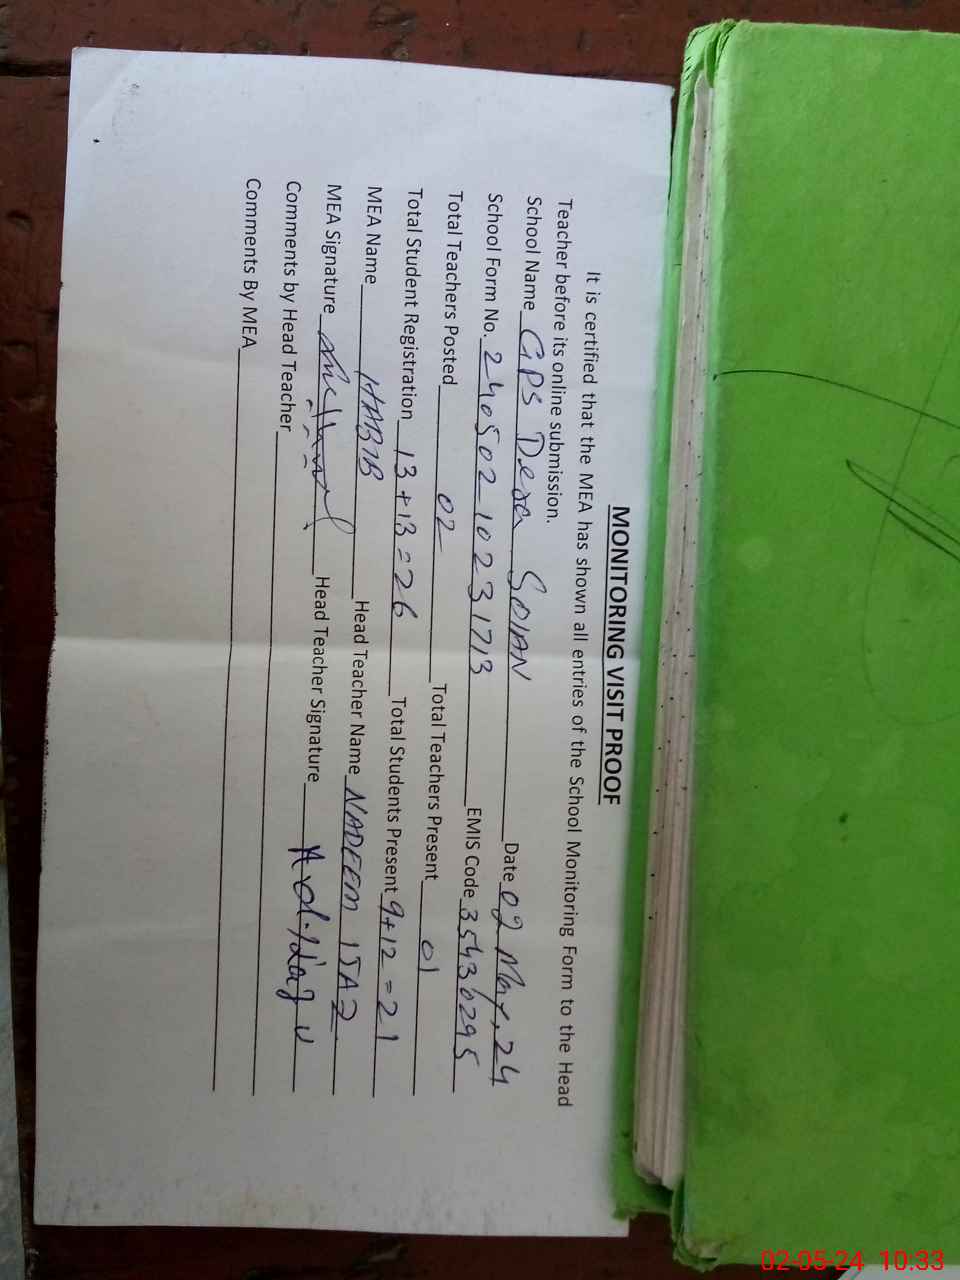 MONITORING VISIT PROOF
It is certified that the MEA has shown all entries of the School Monitoring Form to the Head
Teacher before its online submission.
School Name GPS Dera SOIAN Date 02 May, 24
School Form No. 240502-10231713 EMIS Code 35430295
Total Teachers Posted 02 Total Teachers Present 01
Total Student Registration 13+13=26 Total Students Present 9+12=21
MEA Name HABIB Head Teacher Name NADEEM IJAZ
MEA Signature Head Teacher Signature
Comments by Head Teacher
Comments By MEA
02-05-24 10:33